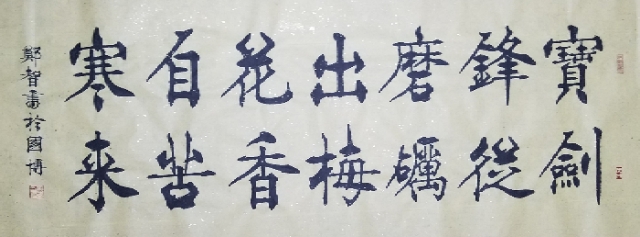 寶劍
鋒從
磨礪
出梅
花香
自苦
寒来
鄭智書於國博